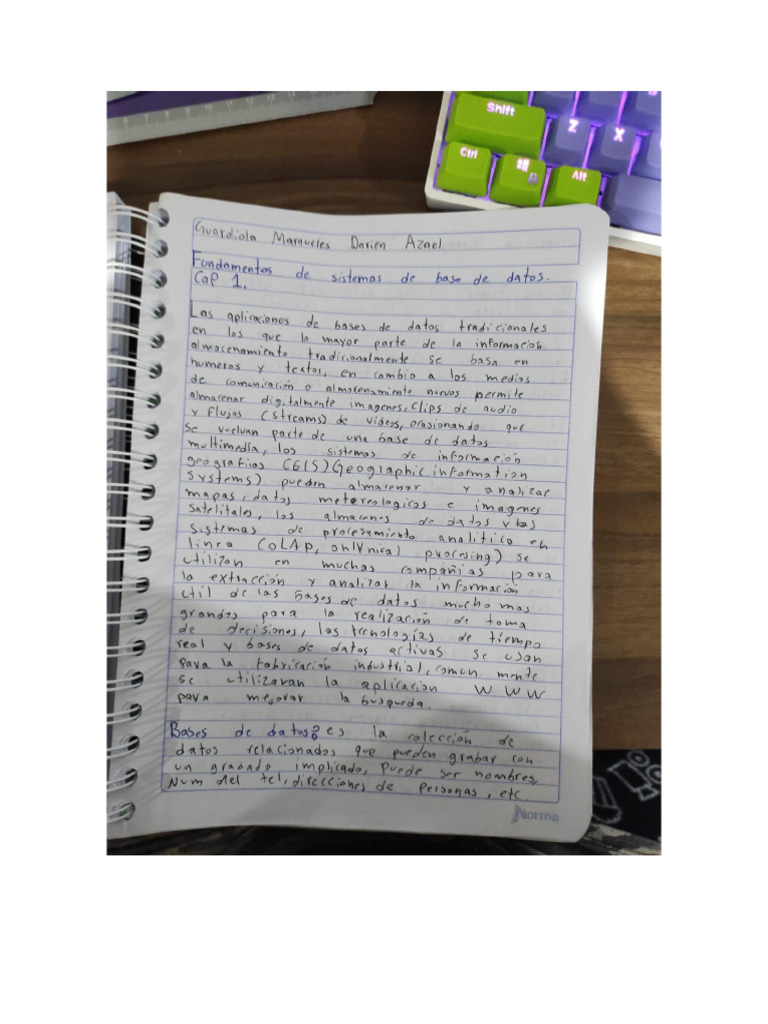 Shift
Z X
Ctrl
Alt
Guardiola Darien Azael
Fundamentos de sistemas de base de datos.
Cap 1.
Las aplicaciones de bases de datos tradicionales
en los que la mayor parte de la información
almacenamiento tradicionalmente se basa en
numeros y textos, en cambio a los medios
de comunicación o almacenamiento nuevos permite
almacenar digitalmente imagenes, clips de audio
y flujos (streams) de videos, ocasionando que
se vuelvan parte de una base de datos
multimedia, los sistemas de información
geografias (GIS) Geographic information
systems) pueden almacenar y analizar
mapas, datos metereologicos e imagenes
satelitales, los almacenes de datos y las
sistemas de procesamiento analitico en
linea (OLAP, procesing) se
utilizan en muchas compañias para
la extracción y analizar la información
util de las bases de datos mucho mas
grandes para la realización de toma
de decisiones, las tecnologías de tiempo
real y bases de datos activas se usan
para la fabricación industrial, comun mente
se utilizaran la aplicacion WWW
para mejorar la busqueda.
Bases de datos: es la colección de
datos relacionados que pueden grabar con
un grabado implicado, puede ser nombres,
Num del tel, direcciones de personas, etc.
Norma